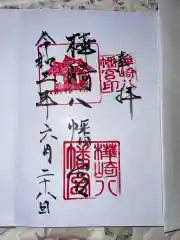 奉拝
樺崎八幡宮
令和二年六月二十八日
樺崎八
幡宮印
樺崎八
幡宮